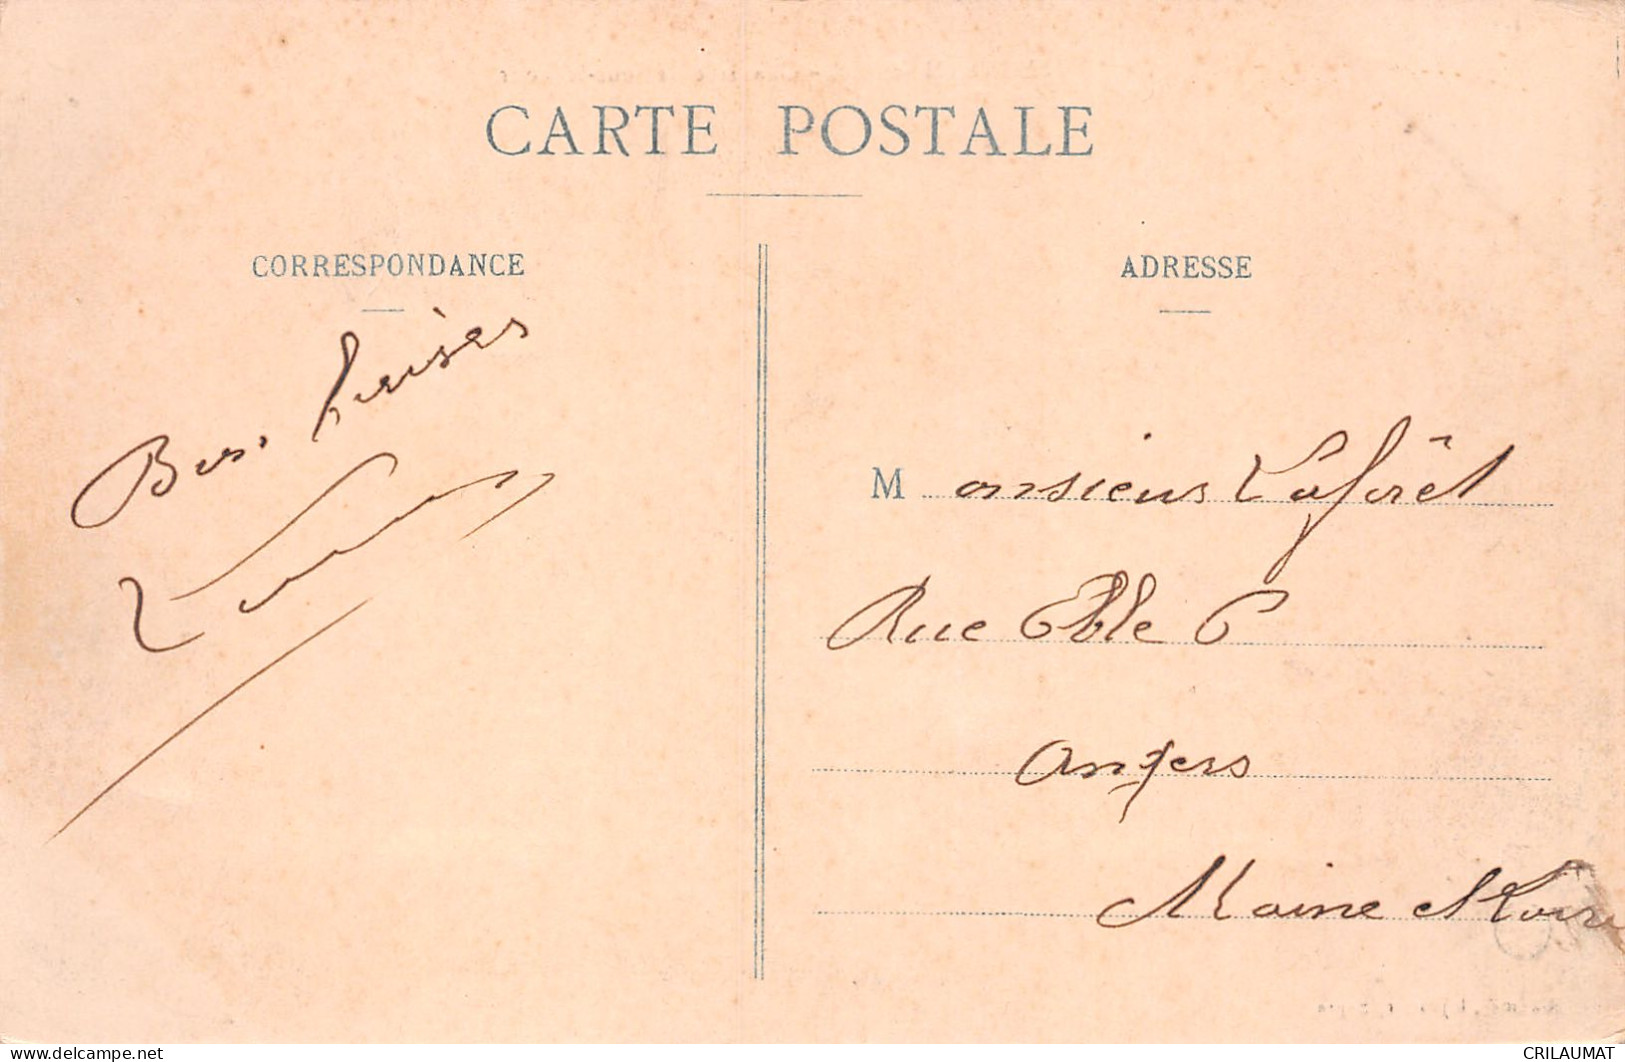 CARTE POSTALE
CORRESPONDANCE
ADRESSE
Monsieur Laforêt
Rue Eblé 6
Angers
Maine et Loire
www.delcampe.net
CRILAUMAT